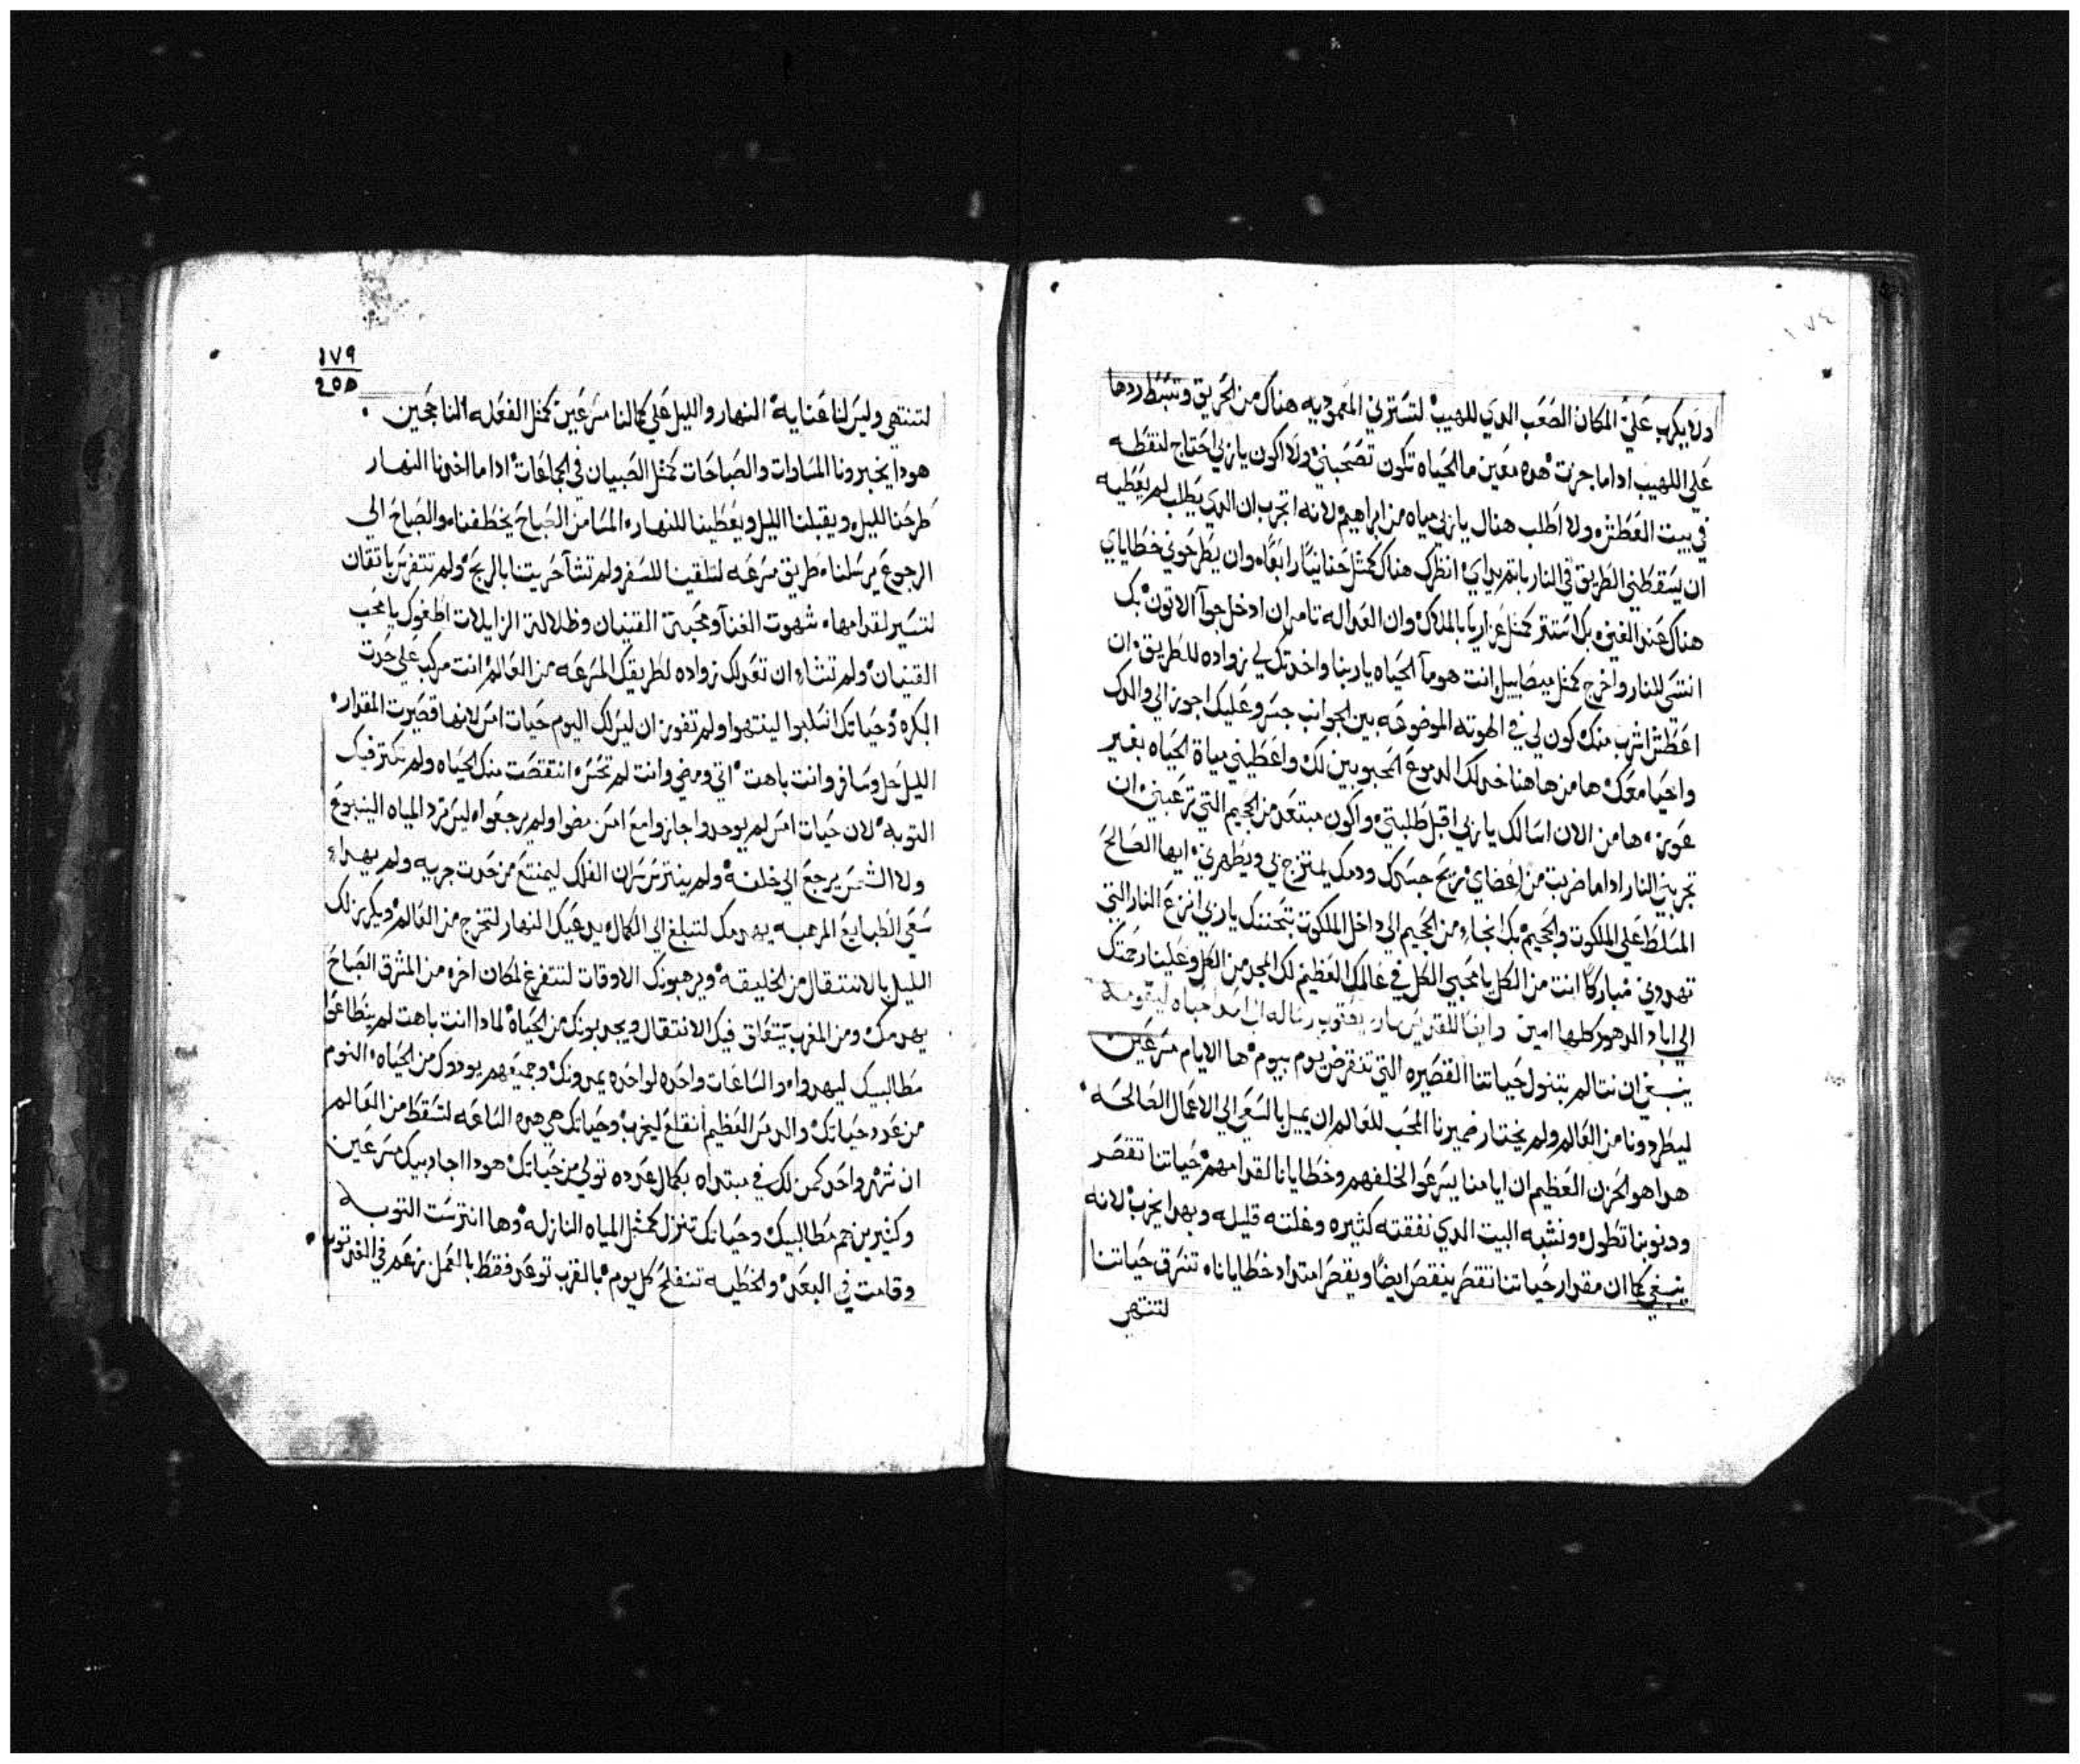 ١٧٤
ولا يكرب علي المكان الصعب الدي للهيب لتسترني المعموديه هناك من الحريق وتبسط ردها
علي اللهيب اداما جزت هده معين ما الحياه تكون تصحبني ولا اكون يا ربي احتاج لنقطه
في بيت العطش ولا اطلب هنال يا ربي مياه من ابراهيم لانه اتجرب ان الدي يطلب لم يعطيه
ان يسقطني الطريق في النار انظرك هناك كمثل حنانيا رابعا وان يطرحوني خطاياي
هناك عند الغني بك استتر كمثل عزاريا بالملاك وان العداله تامر ان ادخل جوا الاتون بك
انتشي للنار واخرج كمثل ميصاييل انت هو ما الحياه يا ربنا واخدتك لي زواده للطريق ان
اعطش اشرب منك كون لي في الهوته الموضوعه بين الجوانب جسر وعليك اجوز الي والدك
واحيا معك ها من هاهنا خد لك الدموع المحبوبين لك واعطيني مياة الحياه بغير
عوز ها من الان اسالك يا ربي اقبل طلبتي واكون مبتعد من الجحيم التي ترعبني ان
تجربني النار اداما ضربت من اعضاي ريح جسدك ودمك يمتزج بي ويطهرني ايها الصالح
المسلط علي الملكوت والجحيم بك انجاء من الجحيم الي داخل الملكوت بتحننك يا ربي انزع النار التي
تهددني مباركا انت من الكل يا محيي الكل في عالمك العظيم لك المجد من الكل وعلينا رحمتك
الي اباد الدهور كلها امين وايضا للقديس مار يعقوب رساله
ينبغي ان نتالم بتنول حياتنا القصيره التي تنقرض يوم بيوم ها الايام مسرعين
ليطردونا من العالم ولم يختار ضميرنا المحب للعالم ان يميل بالسعي الي الاعمال الصالحه
هدا هو الحزن العظيم ان ايامنا يسرعوا لخلفهم وخطايانا لقدامهم حياتنا تقصر
ودنوبنا تطول ونشبه البيت الدي نفقته كثيره وغلته قليله وبهدا يخرب لانه
ينبغي كما ان مقدار حياتنا تقصر ينقص ايضا ويقصر امتداد خطايانا تشرق حياتنا
لتنتهي
١٧٩
٢٥٥
لتنتهي وليس لنا عناية النهار والليل علي كمالنا مسرعين كمثل الفعله الناجحين
هودا يخبرونا المساوات والصباحات كمثل الصبيان في الجماعات اداما اخدنا النهار
طرحنا لليل ويقبلنا الليل ويعطينا للنهار المسا من الصباح يخطفنا والصباح الي
الرجوع يرسلنا طريق مسرعه لتلقينا للسفر ولم تشآ حريتنا بالربح ولم تتفرس باتقان
لتسير لقدامها شهوت الغنآ ومحبة القنيان وظلالة الزايلات اطغوك يا محب
القنيان ولم تشاء ان تعد لك زواده لطريقك المسرعه من العالم انت مركب علي حدت
البكره وحياتك انسلبوا لينتهوا ولم تفوز ان ليس لك اليوم حيات امس لانها قصرت المقدار
الليل حل وسافر وانت باهت اتي ومضي وانت لم تحس انتقصت منك الحياه ولم تكتر فيك
التوبه لان حيات امس لم يوجدوا جازوا مع امس مضوا ولم يرجعوا ليس ترد المياه الينبوع
ولا الشمس يرجع الي خلفه ولم ينترس سران الفلك ليمتنع من حدت جريه ولم يهداء
سعي الطبايع المرهبه يهدمك لتبلغ الي الكمال يدعيك النهار لتخرج من العالم ويكرز لك
الليل بالانتقال من الخليقه ويرهبونك الاوقات لتتفرغ لمكان اخر من المشرق الصباح
يهدمك ومن المغرب يتعلق فيك الانتقال ويجدبونك من الحياه لمادا انت باهت لم ينطاعوا
مطالبيك ليهدوا والساعات واحده لواحده يمدونك وجميعهم يودوك من الحياه اليوم
من عدد حياتك والدس العظيم انقلع ليخرب وحياتك هي هده الساعه لتسقط من العالم
ان شهر واحد كمن لك في مبتداه بكمال عدده تولي من حياتك هودا اجادبيك مسرعين
وكثيرين هم مطالبيك وحياتك تنزل كمثل المياه النازله وها انترست التوبه
وقامت في البعد والخطيه تنفلح كل يوم بالقرب توعد فقط بالعمل نزعم في الغد نتوب